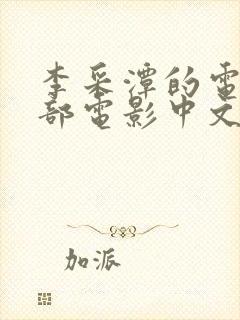 李采潭的電
部電影中文
加派